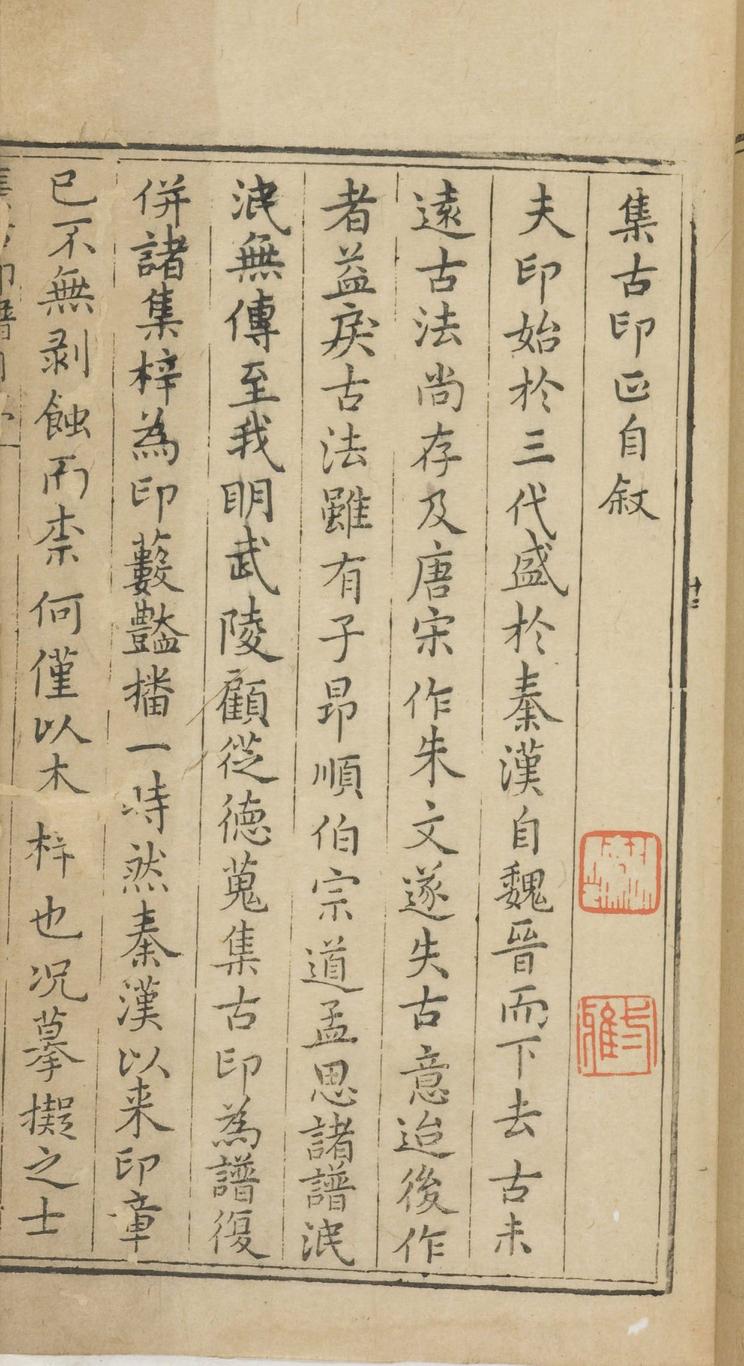 集古印正自叙
夫印始於三代盛於秦漢自魏晉而下去古未
遠古法尚存及唐宋作朱文遂失古意迨後作
者益戾古法雖有子昂順伯宗道孟思諸譜泯
泯無傳至我明武陵顧從德蒐集古印為譜復
併諸集梓為印藪豔播一時然秦漢以来印章
已不無剥蝕而柰何僅以木梓也况摹擬之士